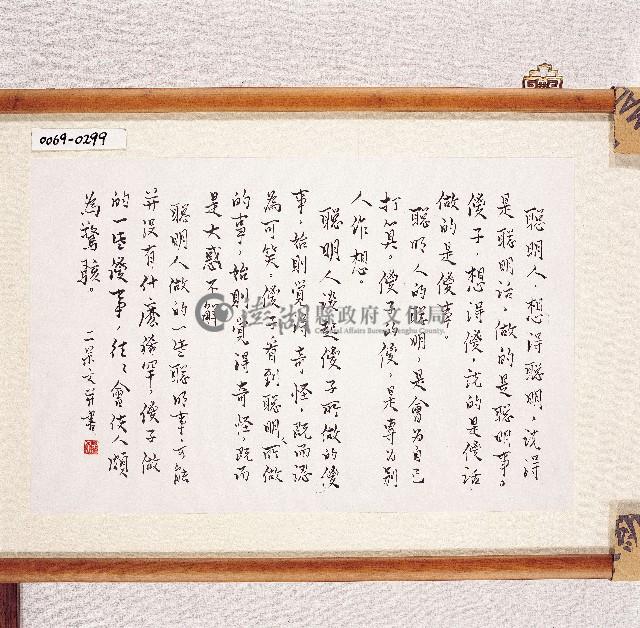 0069-0299
聰明人，想得聰明，說得
是聰明話，做的是聰明事。
傻子，想得傻，說的是傻話，
做的是傻事。
聰明人的聰明，是會為自己
打算。傻子的傻，是專為別
人作想。
聰明人談起傻子所做的傻
事，始則覺得奇怪，既而認
為可笑，傻子看到聰明人所做
的事，始則覺得奇怪，既而
是大惑不解。
聰明人做的一些聰明事，可能
并沒有什麼稀罕，傻子做
的一些傻事，往往會使人頗
為驚駭。
二呆文并書
澎湖縣政府文化局
Cultural Affairs Bureau, Penghu County.